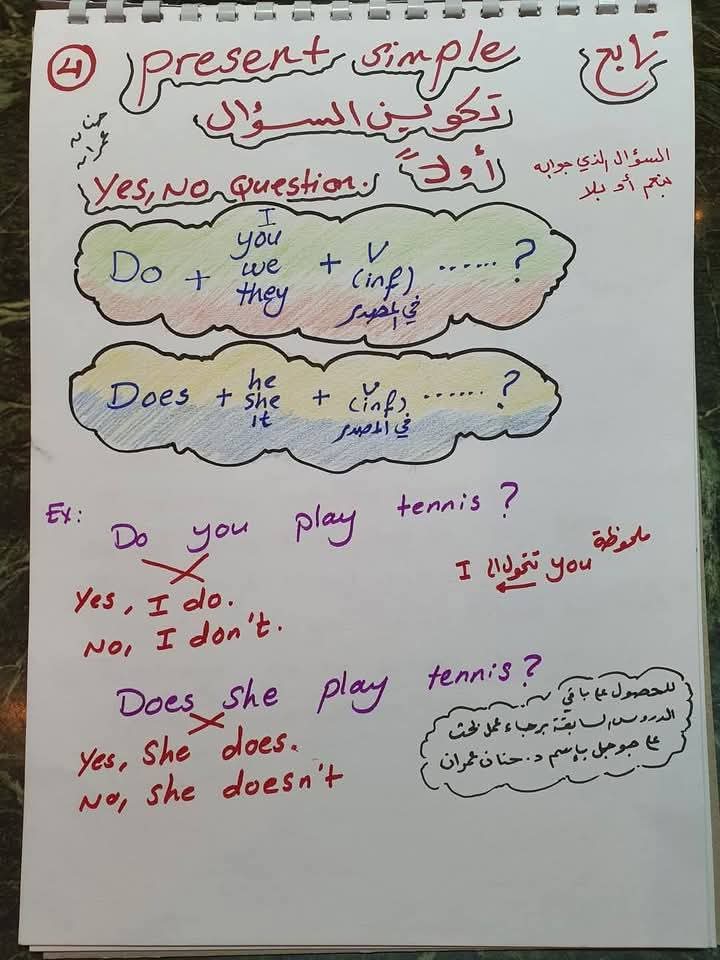 ④ present simple تابع
تكوين السؤال
حنان عمران
Yes, No question. أولاً
السؤال الذي جوابه
بنعم أو بلا
Do + I you we they + V (inf) في المصدر ...... ?
Does + he she it + V (inf) في المصدر ...... ?
Ex: Do you play tennis ?
ملحوظة
you تتحول إلى I
Yes, I do.
No, I don't.
Does she play tennis ?
Yes, She does.
No, she doesn't
للحصول على باقي
الدروس السابقة برجاء عمل بحث
على جوجل بإسم د. حنان عمران